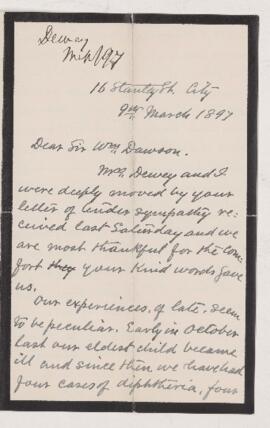 Dewey
Mch 9/97
16 Stanley St. City
9th March 1897
Dear Sir Wm Dawson.
Mrs Dewey and I
were deeply moved by your
letter of tender sympathy re-
ceived last Saturday and we
are most thankful for the com-
fort they your kind words gave
us.
Our experiences, of late, seem
to be peculiar. Early in October
last our eldest child became
ill and since then we have had
four cases of diphtheria, four